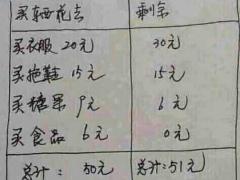 买东西花去 剩余
买衣服 20元 30元
买拖鞋 15元 15元
买糖果 9元 6元
买食品 6元 0元
总计: 50元 总计:51元